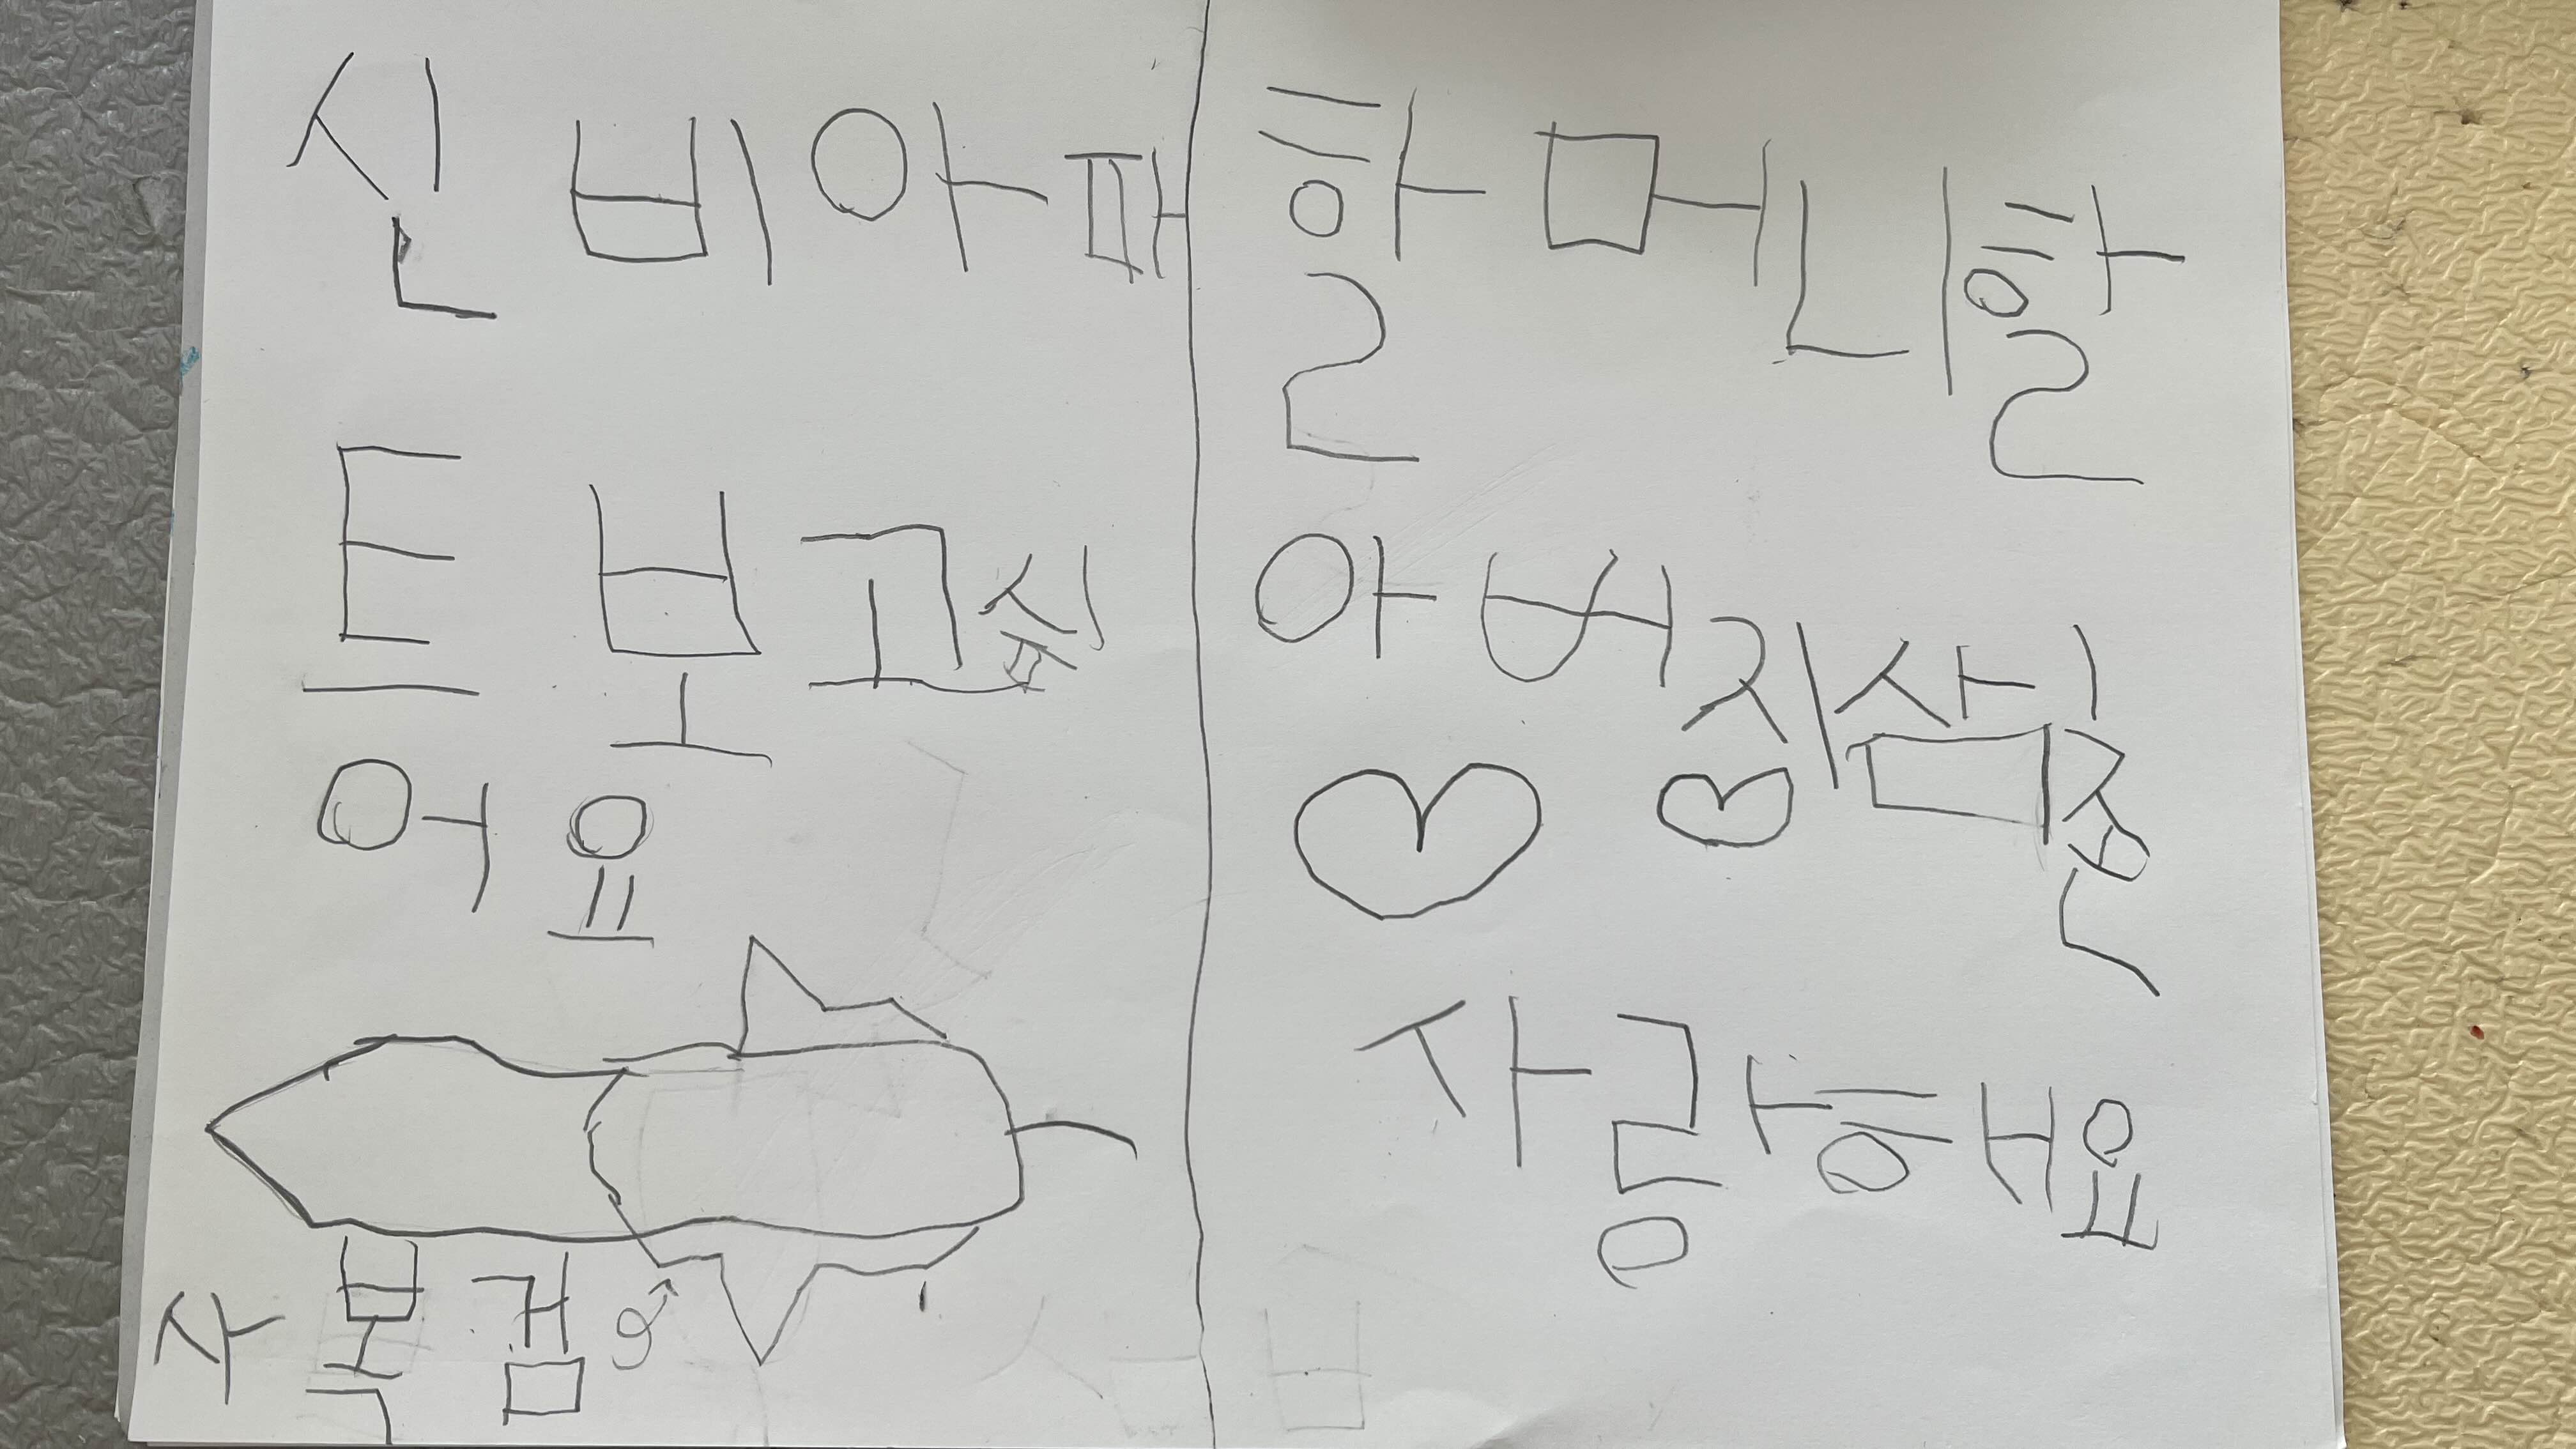 신비아파
트보고싶
어요
사복검
할머니할
아버지삼촌
사랑해요